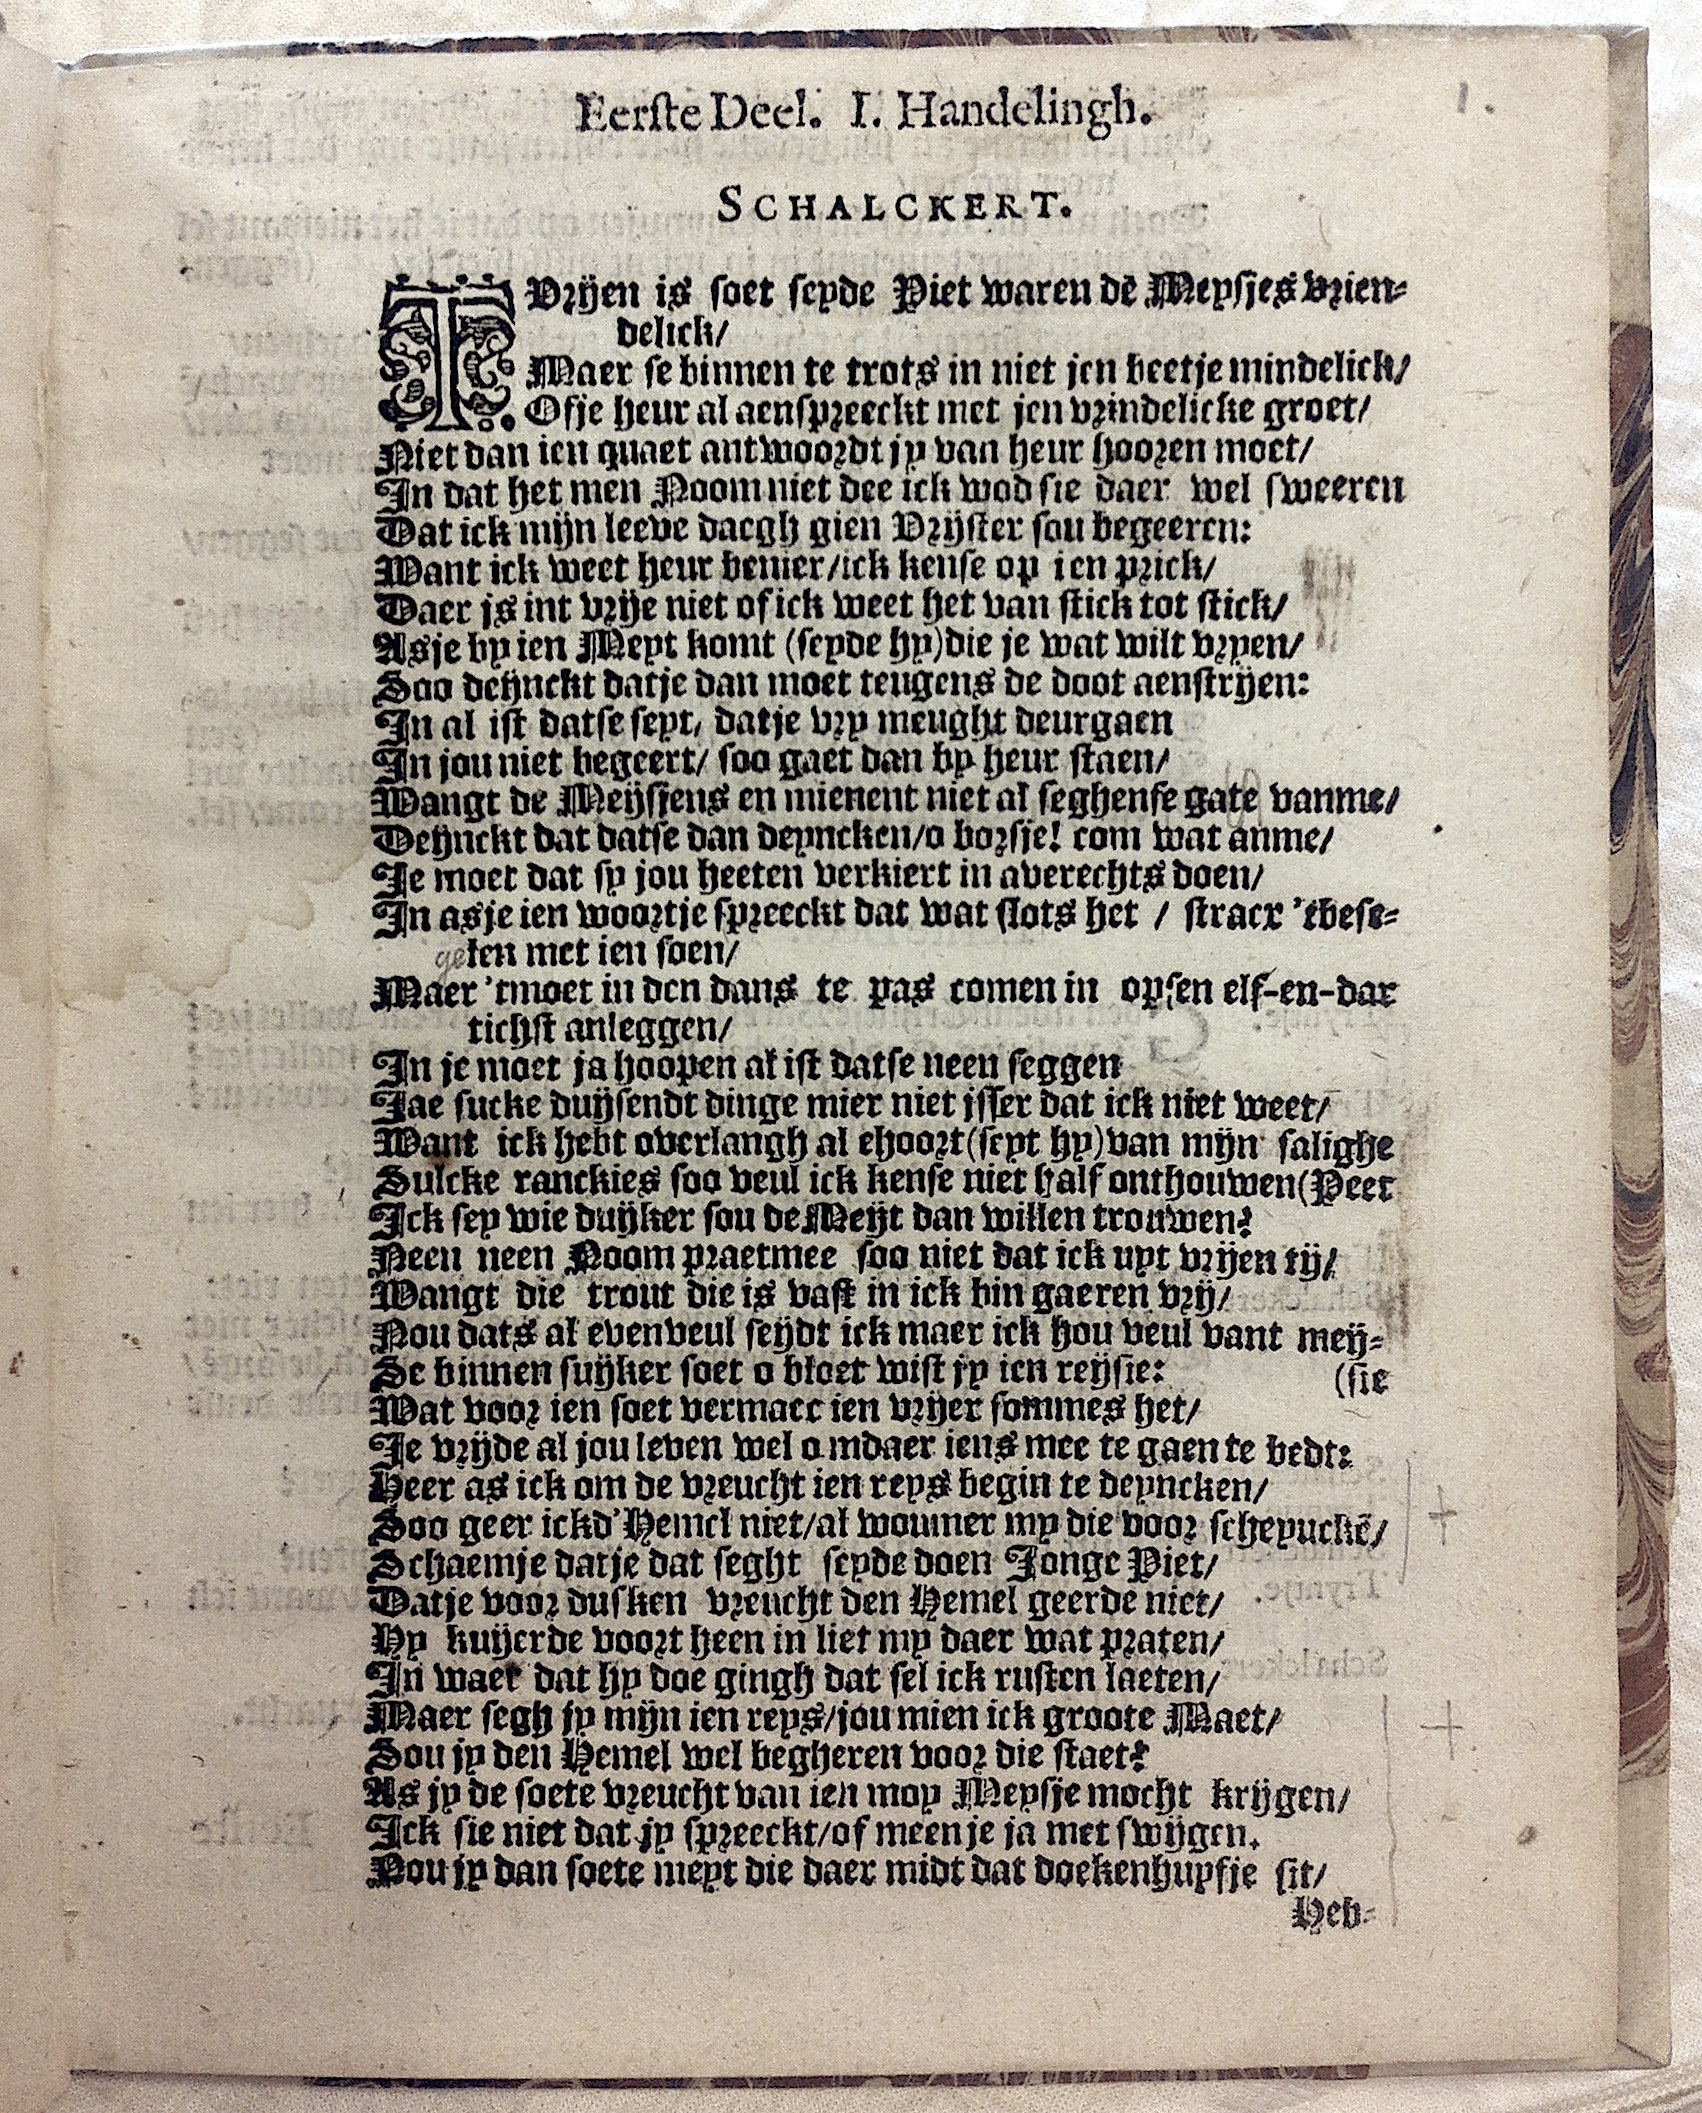 1.
Eerste Deel. I. Handelingh.
SCHALCKERT.
T Vrijen is soet seyde Piet waren dē Meysjes vrien-
delick/
Maer se binnen te trots in niet jen beetje mindelick/
Ofje heur al aenspreeckt met jen vrindelicke groet/
Niet dan ien quaet antwoordt jy van heur hooren moet/
In dat het men Noom niet dee ick wod sie daer wel sweeren
Dat ick mijn leeve daegh gien Vrijster sou begeeren:
Want ick weet heur benier/ick kense op ien prick/
Daer js int vrije niet of ick weet het van stick tot stick/
Asje by ien Meyt komt (seyde hy)die je wat wilt vryen/
Soo deijnckt datje dan moet teugens de doot aenstrijen:
In al ist datse seyt, datje vry meught deurgaen
In jou niet begeert/ soo gaet dan by heur staen/
Wangt de Meijsjens en mienent niet al seghense gate vanme/
Deijnckt dat datse dan deyncken/o borsje! com wat anme/
Je moet dat sy jou heeten verkiert in averechts doen/
In asje ien woortje spreeckt dat wat slots het / stracx 'tbese-
gelen met ien soen/
Maer 'tmoet in den dans te pas comen in opsen elf-en-dar
tichst anleggen/
In je moet ja hoopen al ist datse neen seggen
Jae sucke duijsendt dinge mier niet jsser dat ick niet weet/
Want ick hebt overlangh al ehoort(seyt hy)van mijn salighe
Sulcke ranckies soo veul ick kense niet half onthouwen(Peet
Ick sey wie duijker sou de Meijt dan willen trouwen?
Neen neen Noom praetmee soo niet dat ick uyt vrijen tij/
Wangt die trout die is vast in ick bin gaeren vrij/
Nou dats al evenveul seijdt ick maer ick hou veul vant meij-
Se binnen suijker soet o bloet wist jy ien reijsie:
(sie
Wat voor ien soet vermaec ien vrijer sommes het/
Je vrijde al jou leven wel omdaer iens mee te gaen te bedt:
Heer as ick om de vreucht ien reys begin te deyncken/
Soo geer ickd'Hemel niet/al wouwer my die voor scheynckē/
Schaemje datje dat seght seyde doen Jonge Piet/
Datje voor dusken vreucht den Hemel geerde niet/
Hy kuijerde voort heen in liet my daer wat praten/
In waer dat hy doe gingh dat sel ick rusten laeten/
Maer segh jy mijn ien reys/jou mien ick groote Maet/
Sou jy den Hemel wel begheren voor die staet?
As jy de soete vreucht van ien moy Meysje mocht krijgen/
Ick sie niet dat jy spreeckt/of meenje ja met swijgen.
Nou jy dan soete meyt die daer midt dat doekenhuysje sit/
Heb-